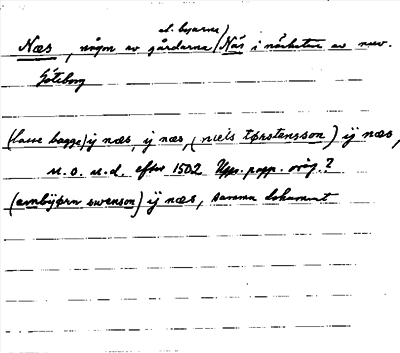 el. byarna)
Næs, någon av gårdarna (Näs i närheten av nuv.
Göteborg
(lasse bagge) ij næs, ij næs, (niels tørstensson) ij næs,
u.o. u.d. efter 1502 Upps. papp. orig.?
(arnbiørn swenson) ij næs, samma dokument